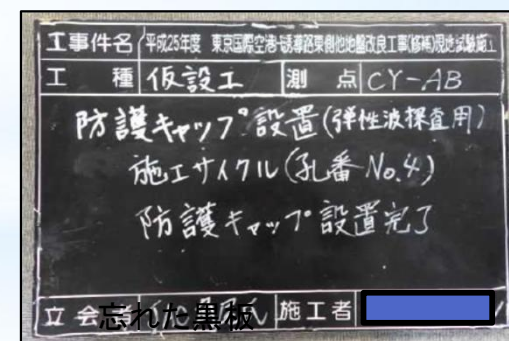 工事件名 平成25年度 東京国際空港H誘導路東側他地盤改良工事(修補)現地試験施工
工 種 仮設工 測 点 CY-AB
防護キャップ設置(弾性波探査用)
施工サイクル(孔番 No.4)
防護キャップ設置完了
立会 施工者
忘れた黒板